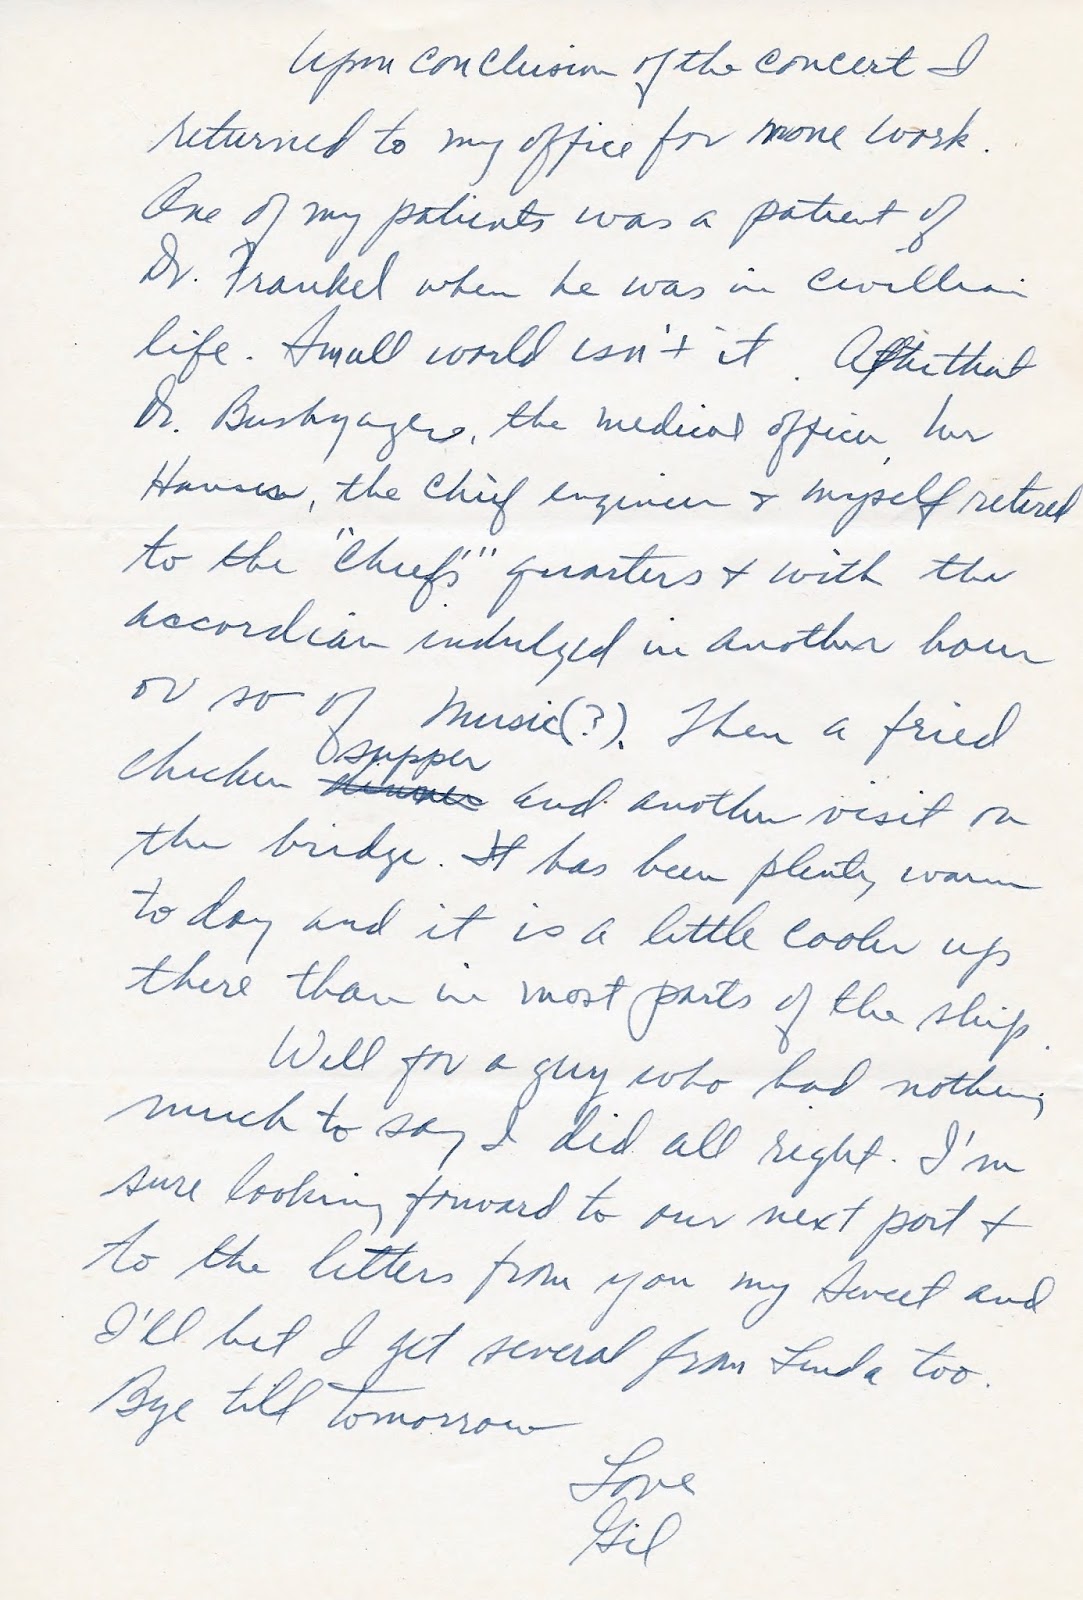 Upon conclusion of the concert I
returned to my office for more work.
One of my patients was a patient of
Dr. Frankel when he was in civillian
life. Small world isn't it. After that
Dr. Bushyager, the medical officer,
Hansen, the chief engineer & myself retired
to the "Chief's" quarters & with the
accordian indulged in another hour
or so of music(?). Then a fried
chicken supper and another visit on
the bridge. It has been plenty warm
to day and it is a little cooler up
there than in most parts of the ship.
Well for a guy who had nothing
much to say I did all right. I'm
sure looking forward to our next port &
to the letters from you my sweet and
I'll bet I get several from Linda too.
Bye till tomorrow
Love
Gil